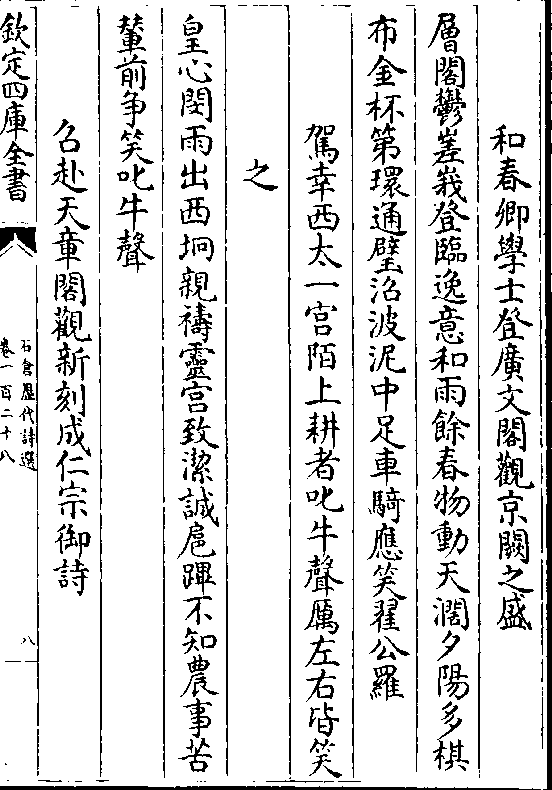 和春卿學士登廣文閣觀京闕之盛
層閣鬱嵳峩登臨逸意和雨餘春物動天濶夕陽多棋
布金杯第環通璧沼波泥中足車騎應笑翟公羅
駕幸西太一宮陌上耕者叱牛聲厲左右皆笑
之
皇心閔雨出西坰親禱靈宮致潔誠扈蹕不知農事苦
輦前争笑叱牛聲
召赴天章閣觀新刻成仁宗御詩
欽定四庫全書
石倉歷代詩選
卷一百二十八
八